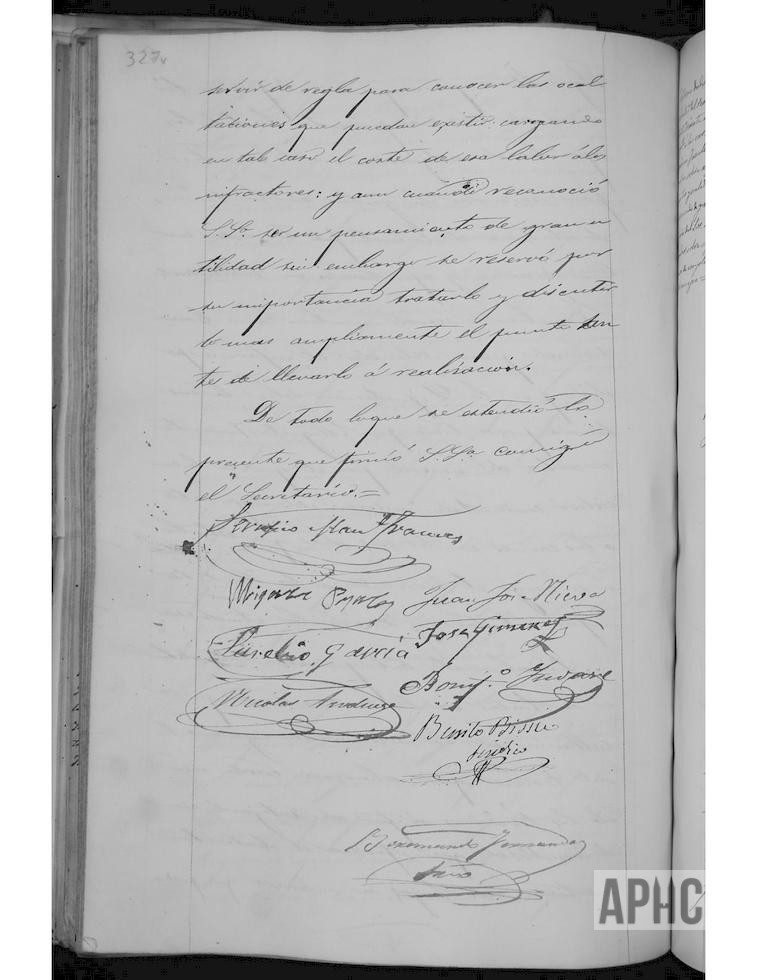 327v
servir de regla para conocer las ocul
taciones que puedan existir cargando
en tal caso el coste de esa labor á los
infractores: y aun cuando reconoció
S. Sa. ser un pensamiento de gran u
tilidad sin embargo se reservó por
su importancia tratarlo y discutir
lo mas ampliamente el punto an
tes de llevarlo á realisacion.
De todo lo que se estendió la
presente que firmó S. Sa. conmigo
el Secretario.=
Juan José Nieva
José Gimenez
Aurelio Garcia
Nicolas
Benito
Sindico
Fernandez
Srio
APHC